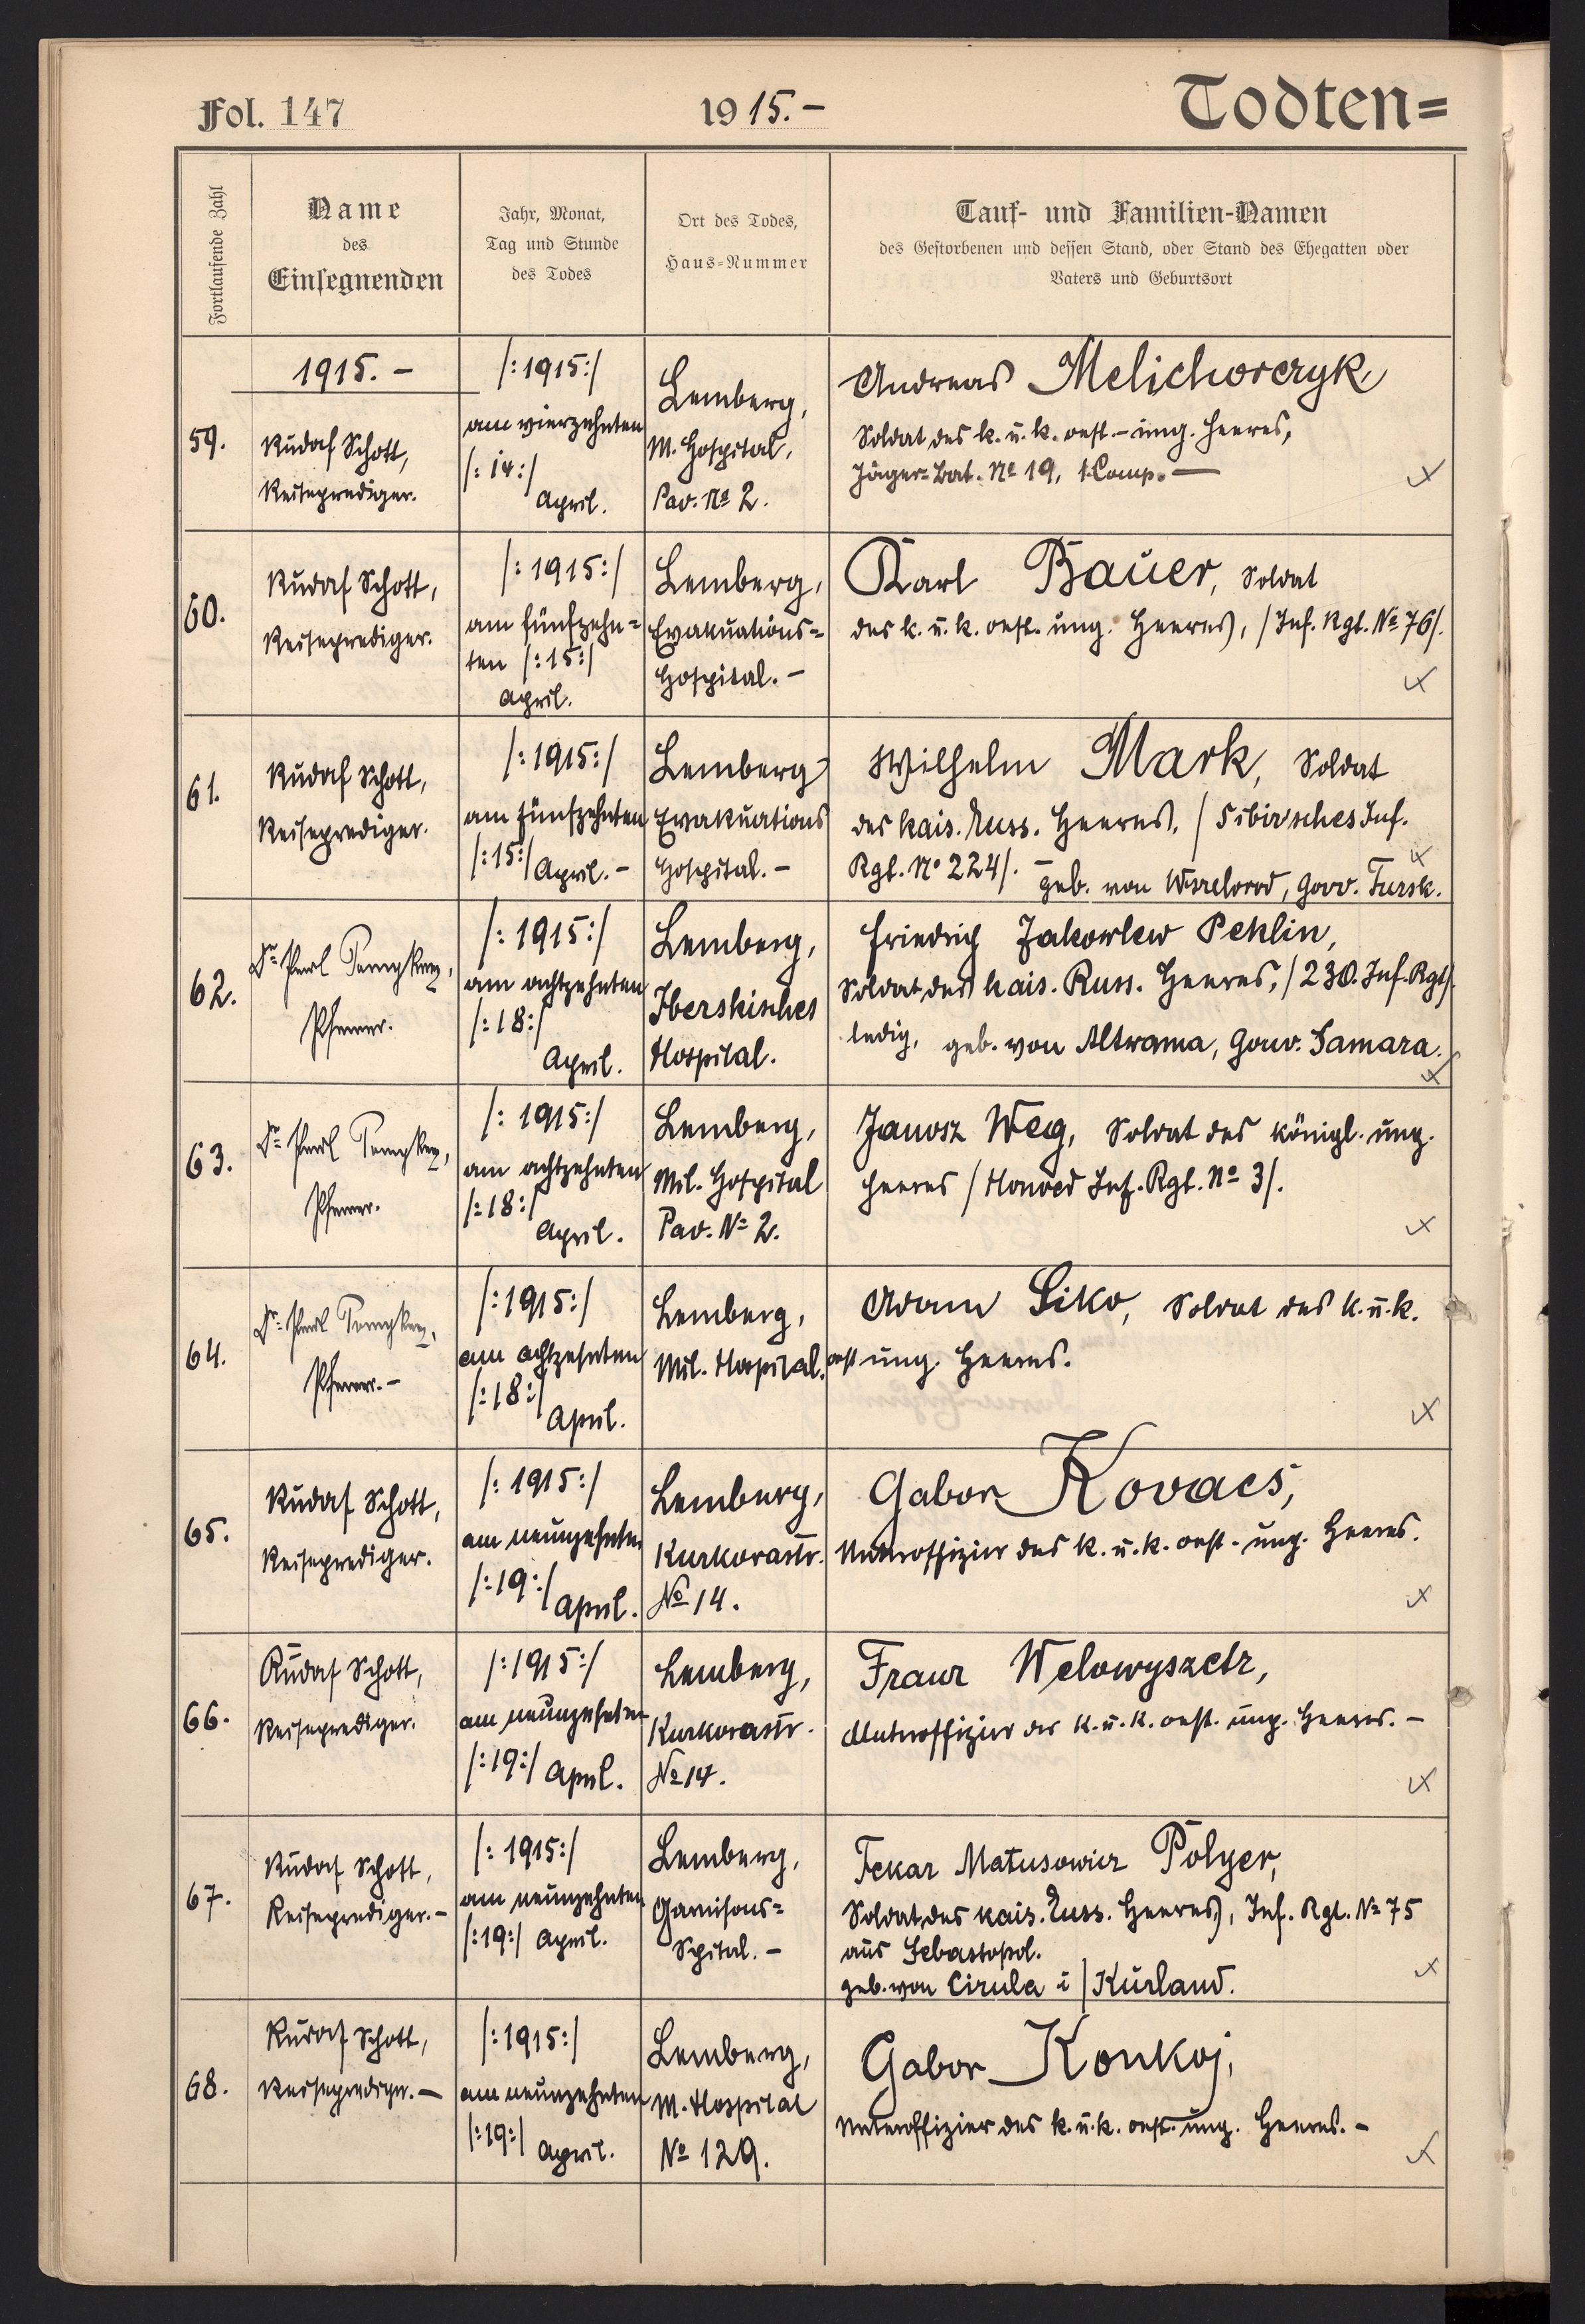 Fol. 147
1915.-
Todten=
Fortlaufende Zahl
Name
des
Einsegnenden
Jahr, Monat,
Tag und Stunde
des Todes
Ort des Todes,
Haus-Nummer
Tauf- und Familien-Namen
des Gestorbenen und dessen Stand, oder Stand des Ehegatten oder
Vaters und Geburtsort
1915. -
59.
Rudolf Schott,
Reiseprediger.
/:1915:/
am vierzehnten
/:14:/
April.
Lemberg,
M. Hospital,
Pav. № 2.
Andreas Melichorczyk
Soldat des k. u. k. oest.-ung. Heeres,
Jäger-Bat. № 19, 1. Comp. —
60.
Rudolf Schott,
Reiseprediger.
/:1915:/
am fünfzehn=
ten /:15:/
April.
Lemberg,
Evakuations=
Hospital. -
Karl Bauer, Soldat
des k. u. k. oest. ung. Heeres, /Inf. Rgt. № 76/.
61.
Rudolf Schott,
Reiseprediger.
/:1915:/
am fünfzehnten
/:15:/ April. -
Lemberg
Evakuations
Hospital. -
Wilhelm Mark, Soldat
des kais. Russ. Heeres, /Sibirsches Inf.
Rgt. № 224/. geb. von Gouv. Tursk.
62.
Dr. Paul
Pfarrer.
/:1915:/
am achtzehnten
/:18:/
April.
Lemberg,
Iberskisches
Hospital.
Friedrich Jakowlew Pehlin,
Soldat des kais. Russ. Heeres, /230. Inf. Rgt/.
ledig, geb. von Altrama, Gouv. Samara.
63.
Dr. Paul
Pfarrer.
/:1915:/
am achtzehnten
/:18:/
April.
Lemberg,
Mil. Hospital
Pav. № 2.
Janosz Weg, Soldat des königl. ung.
Heeres /Honved Inf. Rgt. № 3/.
64.
Dr. Paul
Pfarrer. -
/:1915:/
am achtzehnten
/:18:/
April.
Lemberg,
Mil. Hospital.
Adam Siko, Soldat des k. u. k.
oest ung. Heeres.
65.
Rudolf Schott,
Reiseprediger.
/:1915:/
am neunzehnten
/:19:/ April.
Lemberg,
Kurkorastr.
№ 14.
Gabor Kovacs,
Unteroffizier des k. u. k. oest.-ung. Heeres.
66.
Rudolf Schott,
Reiseprediger.
/:1915:/
am neunzehnten
/:19:/ April.
Lemberg,
Kurkorastr.
№ 14.
Franz Welowyszetz,
Unteroffizier des k. u. k. oest. ung. Heeres. -
67.
Rudolf Schott,
Reiseprediger. -
/:1915:/
am neunzehnten
/:19:/ April.
Lemberg,
Garnisons=
Spital. -
Fekar Matusowicz Polyer,
Soldat des kais. Russ. Heeres, Inf. Rgt. № 75
aus Sebastopol.
geb. von Cirula i/Kurland.
68.
Rudolf Schott,
Reiseprediger. —
/:1915:/
am neunzehnten
/:19:/ April.
Lemberg,
M. Hospital
№ 129.
Gabor Konkoj,
Unteroffizier des k. u. k. oest. ung. Heeres. -